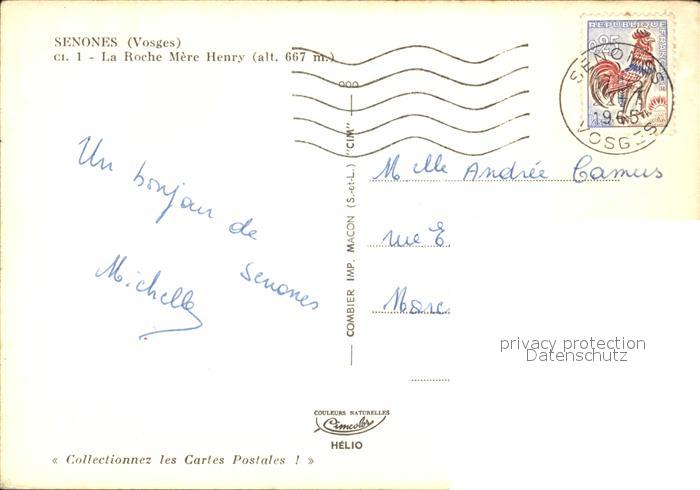 SENONES (Vosges)
CI. 1 - La Roche Mère Henry (alt. 667 m.)
REPUBLIQUE FRANÇAISE
0,25
SENONES
1965
VOSGES
Un bonjour de
Senones
Michelle
COMBIER IMP. MACON (S.-et-L.) "CIM"
Melle Andrée Camus
rue E
Marc
privacy protection
Datenschutz
COULEURS NATURELLES
Cimcolor
HÉLIO
« Collectionnez les Cartes Postales ! »